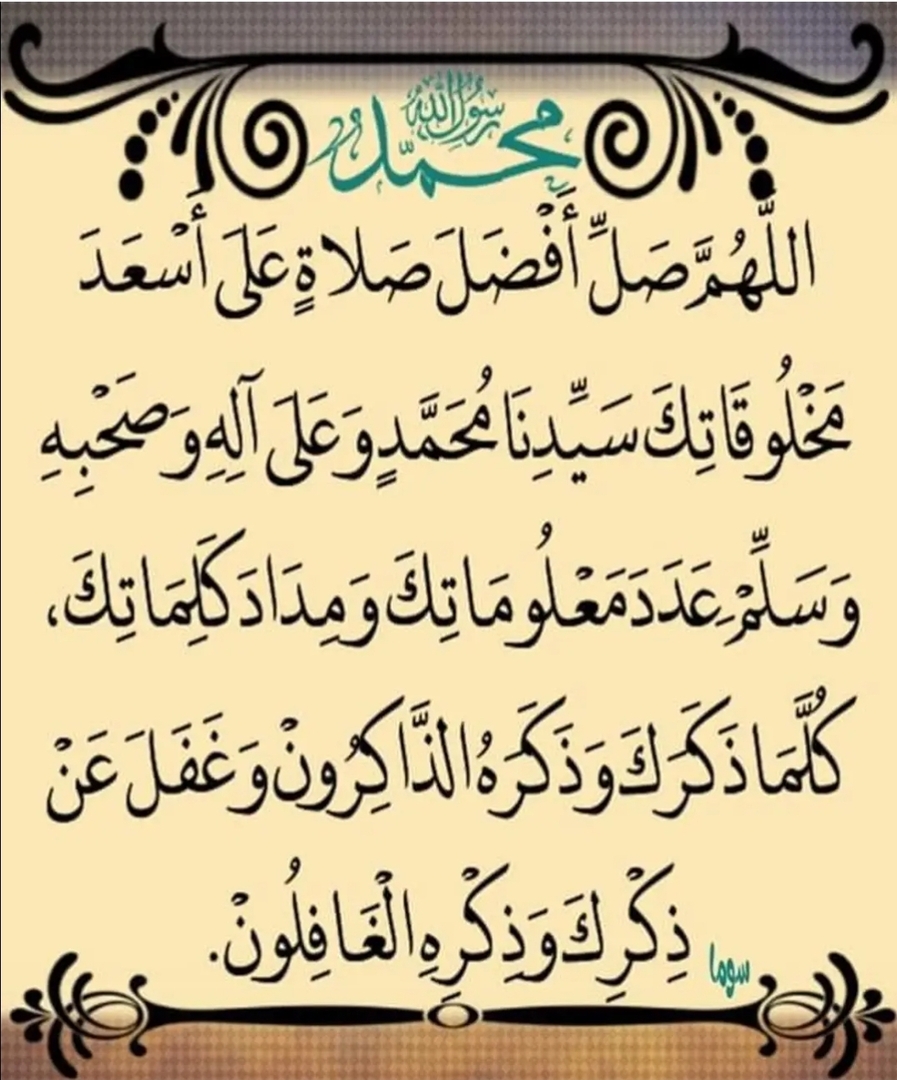 محمد رسول الله
اللَّهُمَّ صَلِّ أَفْضَلَ صَلَاةٍ عَلَى أَسْعَدَ
مَخْلُوقَاتِكَ سَيِّدِنَا مُحَمَّدٍ وَعَلَى آلِهِ وَصَحْبِهِ
وَسَلِّمْ عَدَدَ مَعْلُومَاتِكَ وَمِدَادَ كَلِمَاتِكَ،
كُلَّمَا ذَكَرَكَ وَذَكَرَهُ الذَّاكِرُونْ وَغَفَلَ عَنْ
ذِكْرِكَ وَذِكْرِهِ الْغَافِلُونْ.
سوما